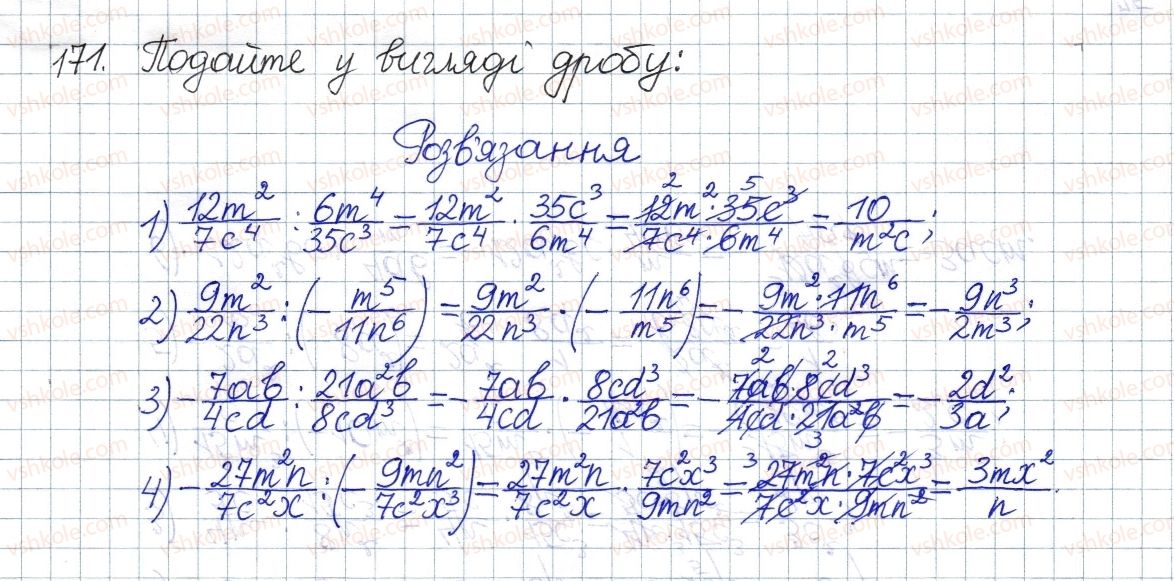 171. Подайте у вигляді дробу:
Розв'язання
1) 12m²/7c⁴ : 6m⁴/35c³ = 12m²/7c⁴ · 35c³/6m⁴ = 12m²·35c³/7c⁴·6m⁴ = 10/m²c;
2) 9m²/22n³ : (- m⁵/11n⁶) = 9m²/22n³ · (- 11n⁶/m⁵) = - 9m²·11n⁶/22n³·m⁵ = - 9n³/2m³;
3) - 7ab/4cd : 21a²b/8cd³ = - 7ab/4cd · 8cd³/21a²b = - 7ab·8cd³/4cd·21a²b = - 2d²/3a;
4) - 27m²n/7c²x : (- 9mn²/7c²x³) = 27m²n/7c²x · 7c²x³/9mn² = 27m²n·7c²x³/7c²x·9mn² = 3mx²/n.